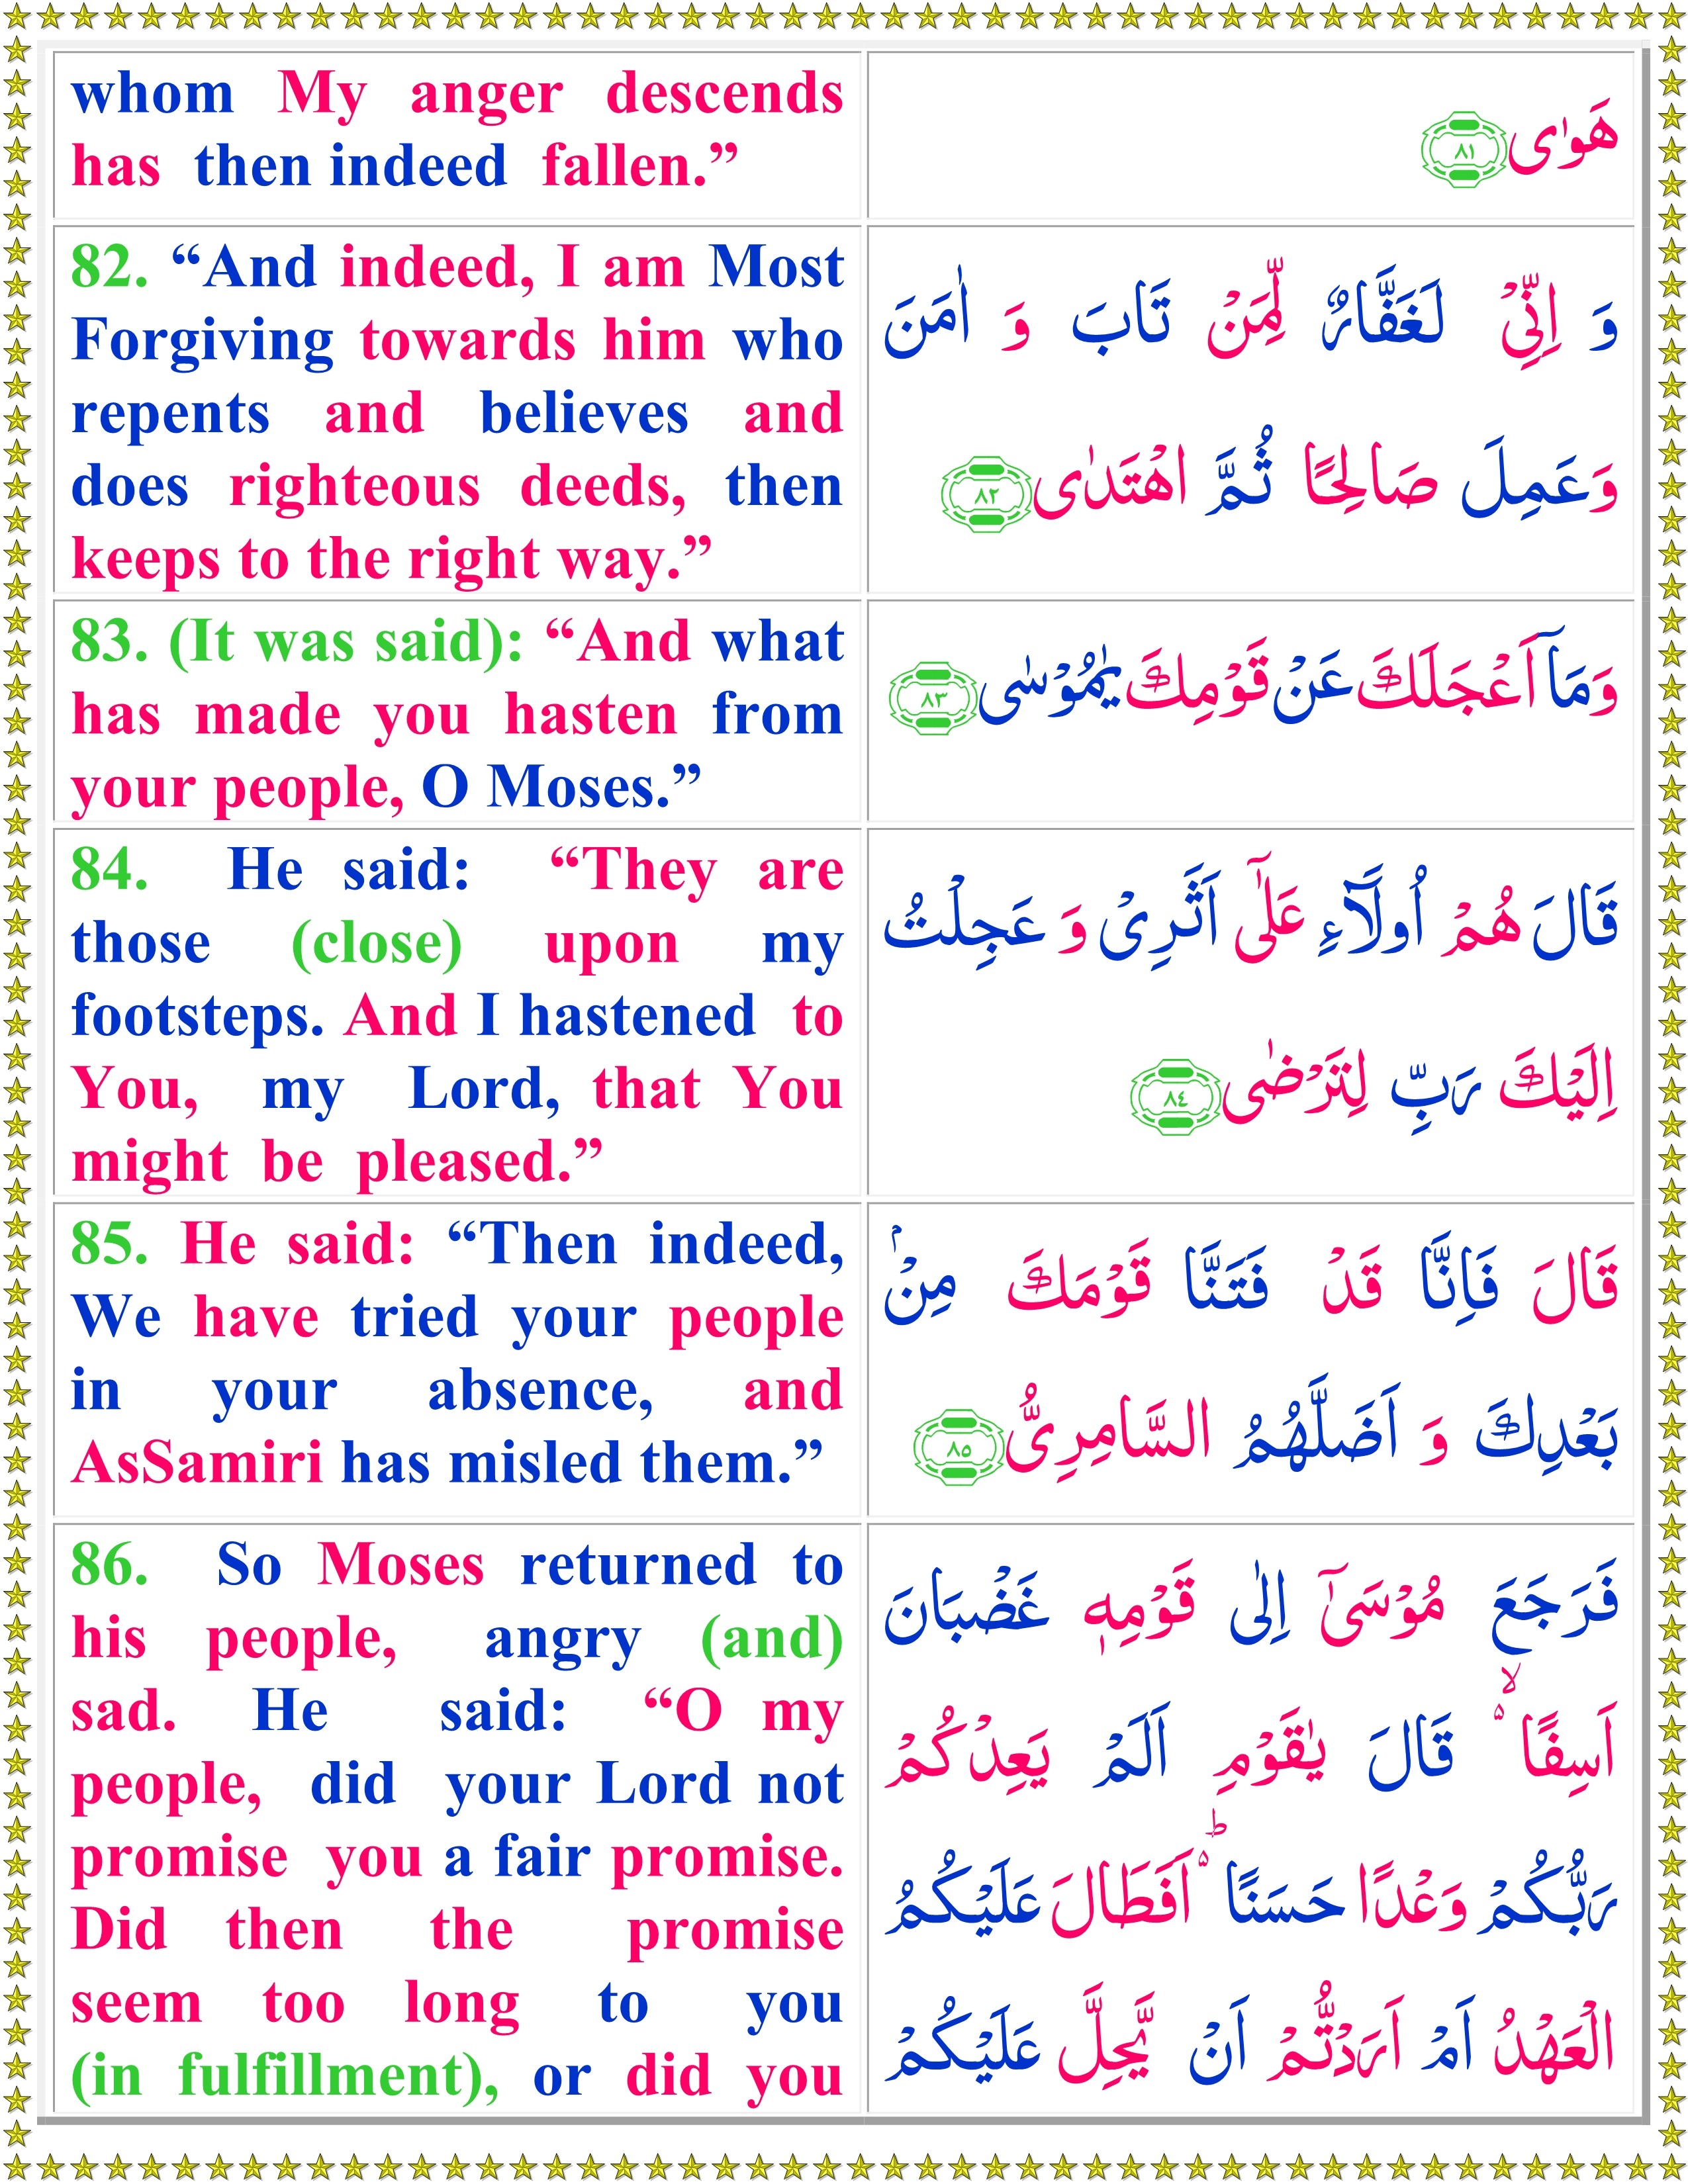 whom My anger descends
has then indeed fallen.”
هَوٰى ﴿٨١﴾
82. “And indeed, I am Most
Forgiving towards him who
repents and believes and
does righteous deeds, then
keeps to the right way.”
وَ اِنِّىْ لَغَفَّارٌ لِّمَنْ تَابَ وَ اٰمَنَ
وَعَمِلَ صَالِحًا ثُمَّ اهْتَدٰى ﴿٨٢﴾
83. (It was said): “And what
has made you hasten from
your people, O Moses.”
وَمَاۤ اَعْجَلَكَ عَنْ قَوْمِكَ يٰمُوْسٰى ﴿٨٣﴾
84. He said: “They are
those (close) upon my
footsteps. And I hastened to
You, my Lord, that You
might be pleased.”
قَالَ هُمْ اُولَاۤءِ عَلٰٓى اَثَرِىْ وَ عَجِلْتُ
اِلَيْكَ رَبِّ لِتَرْضٰى ﴿٨٤﴾
85. He said: “Then indeed,
We have tried your people
in your absence, and
AsSamiri has misled them.”
قَالَ فَاِنَّا قَدْ فَتَنَّا قَوْمَكَ مِنْۢ
بَعْدِكَ وَ اَضَلَّهُمُ السَّامِرِىُّ ﴿٨٥﴾
86. So Moses returned to
his people, angry (and)
sad. He said: “O my
people, did your Lord not
promise you a fair promise.
Did then the promise
seem too long to you
(in fulfillment), or did you
فَرَجَعَ مُوْسَىٰٓ اِلٰى قَوْمِهٖ غَضْبَانَ
اَسِفًا ۙ۬ قَالَ يٰقَوْمِ اَلَمْ يَعِدْكُمْ
رَبُّكُمْ وَعْدًا حَسَنًا ؕ۬ اَفَطَالَ عَلَيْكُمُ
الْعَهْدُ اَمْ اَرَدْتُّمْ اَنْ يَّحِلَّ عَلَيْكُمْ